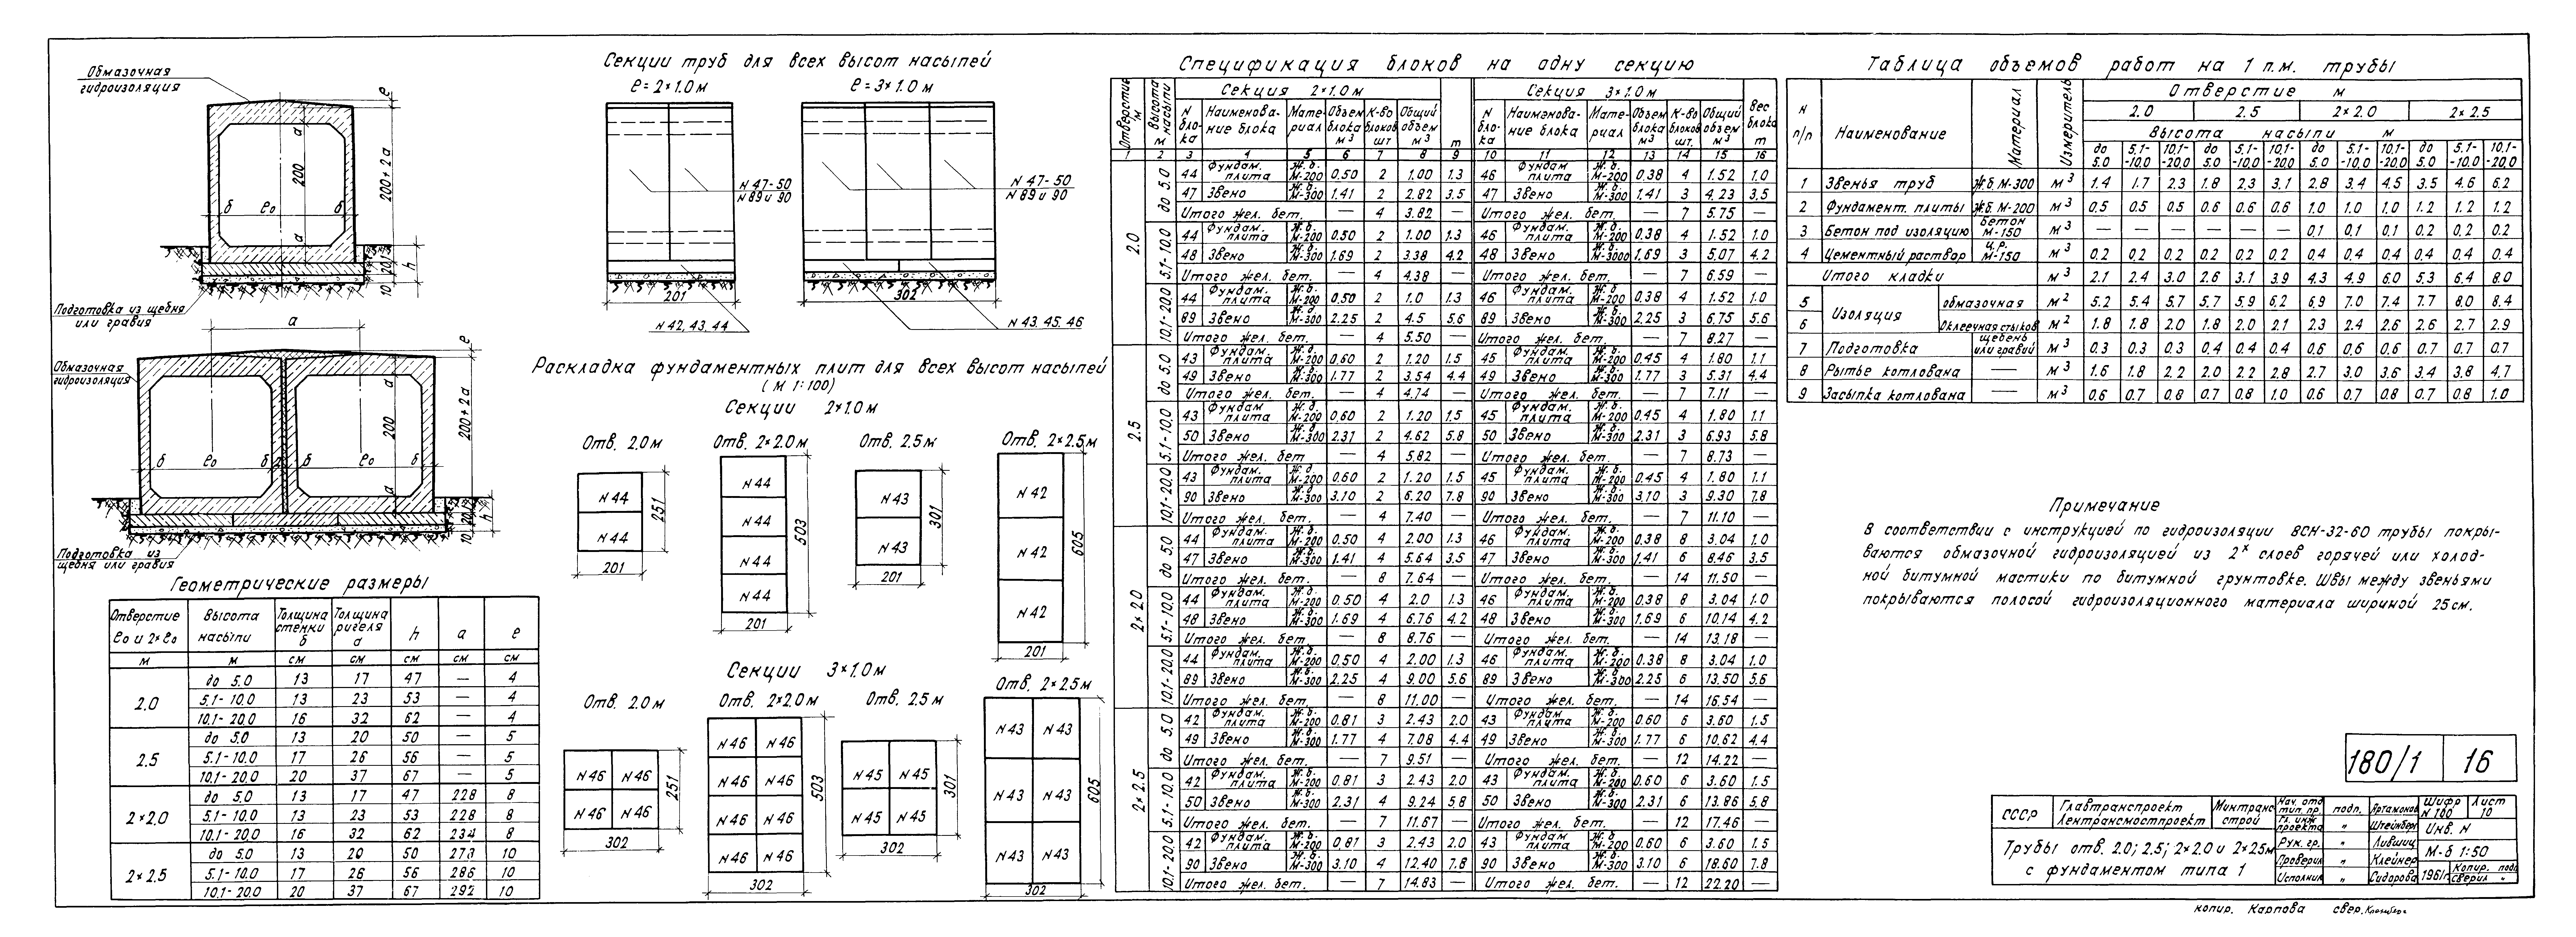 Обмазочная
гидроизоляция
а
200
200+2а
е
б ℓо б
а
20,1
10
h
Подготовка из щебня
или гравия
а
е
Обмазочная
гидроизоляция
а
200
200+2а
б ℓо б 2 б ℓо б
а
20,1
10
h
Подготовка из
щебня или гравия
Геометрические размеры
Отверстие ℓо и 2×ℓо | Высота насыпи | Толщина стенки б | Толщина ригеля d | h | а | е
м | м | см | см | см | см | см
2.0 | до 5.0 | 13 | 17 | 47 | — | 4
5.1-10.0 | 13 | 23 | 53 | — | 4
10.1-20.0 | 16 | 32 | 62 | — | 4
2.5 | до 5.0 | 13 | 20 | 50 | — | 5
5.1-10.0 | 17 | 26 | 56 | — | 5
10.1-20.0 | 20 | 37 | 67 | — | 5
2×2.0 | до 5.0 | 13 | 17 | 47 | 228 | 8
5.1-10.0 | 13 | 23 | 53 | 228 | 8
10.1-20.0 | 16 | 32 | 62 | 234 | 8
2×2.5 | до 5.0 | 13 | 20 | 50 | 278 | 10
5.1-10.0 | 17 | 26 | 56 | 286 | 10
10.1-20.0 | 20 | 37 | 67 | 292 | 10
Секции труб для всех высот насыпей
ℓ=2×1.0м
ℓ=3×1.0м
N 47-50
N 89 и 90
N 47-50
N 89 и 90
201
302
N 42, 43, 44
N 43. 45. 46
Раскладка фундаментных плит для всех высот насыпей
(М 1:100)
Секции 2×1.0м
Отв. 2.0м
Отв. 2×2.0м
Отв. 2.5м
Отв. 2×2.5м
N 44
N 44
251
201
N 44
N 44
N 44
N 44
503
201
N 43
N 43
301
201
N 42
N 42
N 42
605
201
Секции 3×1.0м
Отв. 2.0м
Отв. 2×2.0м
Отв. 2.5м
Отв. 2×2.5м
N 46 N 46
N 46 N 46
251
302
N 46 N 46
N 46 N 46
N 46 N 46
N 46 N 46
503
302
N 45 N 45
N 45 N 45
301
302
N 43 N 43
N 43 N 43
N 43 N 43
605
302
Спецификация блоков на одну секцию
Отверстие м | Высота насыпи м | Секция 2×1.0м | Секция 3×1.0м
N блока | Наименование блока | Материал | Объем блока м³ | К-во блоков шт | Общий объем м³ | т | N блока | Наименование блока | Материал | Объем блока м³ | К-во блоков шт. | Общий объем м³ | Вес блока т
1 | 2 | 3 | 4 | 5 | 6 | 7 | 8 | 9 | 10 | 11 | 12 | 13 | 14 | 15 | 16
2.0 | до 5.0 | 44 | Фундам. плита | Ж.б. М-200 | 0.50 | 2 | 1.00 | 1.3 | 46 | Фундам плита | Ж.б. М-200 | 0.38 | 4 | 1.52 | 1.0
47 | Звено | Ж.б. М-300 | 1.41 | 2 | 2.82 | 3.5 | 47 | Звено | Ж.б. М-300 | 1.41 | 3 | 4.23 | 3.5
Итого жел. бет. | — | 4 | 3.82 | — | Итого жел. бет. | — | 7 | 5.75 | —
5.1-10.0 | 44 | Фундам. плита | Ж.б. М-200 | 0.50 | 2 | 1.00 | 1.3 | 46 | Фундам. плита | Ж.б. М-200 | 0.38 | 4 | 1.52 | 1.0
48 | Звено | Ж.б. М-300 | 1.69 | 2 | 3.38 | 4.2 | 48 | Звено | Ж.б. М-3000 | 1.69 | 3 | 5.07 | 4.2
Итого жел. бет. | — | 4 | 4.38 | — | Итого жел. бет. | — | 7 | 6.59 | —
10.1-20.0 | 44 | Фундам. плита | Ж.б. М-200 | 0.50 | 2 | 1.0 | 1.3 | 46 | Фундам. плита | Ж.б. М-200 | 0.38 | 4 | 1.52 | 1.0
89 | Звено | Ж.б. М-300 | 2.25 | 2 | 4.5 | 5.6 | 89 | Звено | Ж.б. М-300 | 2.25 | 3 | 6.75 | 5.6
Итого жел. бет. | — | 4 | 5.50 | — | Итого жел. бет. | — | 7 | 8.27 | —
2.5 | до 5.0 | 43 | Фундам. плита | Ж.б. М-200 | 0.60 | 2 | 1.20 | 1.5 | 45 | Фундам. плита | Ж.б. М-200 | 0.45 | 4 | 1.80 | 1.1
49 | Звено | Ж.б. М-300 | 1.77 | 2 | 3.54 | 4.4 | 49 | Звено | Ж.б. М-300 | 1.77 | 3 | 5.31 | 4.4
Итого жел. бет. | — | 4 | 4.74 | — | Итого жел. бет. | — | 7 | 7.11 | —
5.1-10.0 | 43 | Фундам. плита | Ж.б. М-200 | 0.60 | 2 | 1.20 | 1.5 | 45 | Фундам. плита | Ж.б. М-200 | 0.45 | 4 | 1.80 | 1.1
50 | Звено | Ж.б. М-300 | 2.31 | 2 | 4.62 | 5.8 | 50 | Звено | Ж.б. М-300 | 2.31 | 3 | 6.93 | 5.8
Итого жел. бет | — | 4 | 5.82 | — | Итого жел. бет. | — | 7 | 8.73 | —
10.1-20.0 | 43 | Фундам. плита | Ж.б. М-200 | 0.60 | 2 | 1.20 | 1.5 | 45 | Фундам. плита | Ж.б. М-200 | 0.45 | 4 | 1.80 | 1.1
90 | Звено | Ж.б М-300 | 3.10 | 2 | 6.20 | 7.8 | 90 | Звено | Ж.б. М-300 | 3.10 | 3 | 9.30 | 7.8
Итого жел. бет. | — | 4 | 7.40 | — | Итого жел. бет. | — | 7 | 11.10 | —
2×2.0 | до 5.0 | 44 | Фундам. плита | Ж.б. М-200 | 0.50 | 4 | 2.00 | 1.3 | 46 | Фундам. плита | Ж.б. М-200 | 0.38 | 8 | 3.04 | 1.0
47 | Звено | Ж.б. М-300 | 1.41 | 4 | 5.64 | 3.5 | 47 | Звено | Ж.б. М-300 | 1.41 | 6 | 8.46 | 3.5
Итого жел. бет. | — | 8 | 7.64 | — | Итого жел. бет. | — | 14 | 11.50 | —
5.1-10.0 | 44 | Фундам. плита | Ж.б. М-200 | 0.50 | 4 | 2.0 | 1.3 | 46 | Фундам. плита | Ж.б. М-200 | 0.38 | 8 | 3.04 | 1.0
48 | Звено | Ж.б. М-300 | 1.69 | 4 | 6.76 | 4.2 | 48 | Звено | Ж.б. М-300 | 1.69 | 6 | 10.14 | 4.2
Итого жел. бет. | — | 8 | 8.76 | — | Итого жел. бет. | — | 14 | 13.18 | —
10.1-20.0 | 44 | Фундам. плита | Ж.б. М-200 | 0.50 | 4 | 2.00 | 1.3 | 46 | Фундам. плита | Ж.б. М-200 | 0.38 | 8 | 3.04 | 1.0
89 | Звено | Ж.б. М-300 | 2.25 | 4 | 9.00 | 5.6 | 89 | Звено | Ж.б. М-300 | 2.25 | 6 | 13.50 | 5.6
Итого жел. бет. | — | 8 | 11.00 | — | Итого жел. бет. | — | 14 | 16.54 | —
2×2.5 | до 5.0 | 42 | Фундам. плита | Ж.б. М-200 | 0.81 | 3 | 2.43 | 2.0 | 43 | Фундам плита | Ж.б. М-200 | 0.60 | 6 | 3.60 | 1.5
49 | Звено | Ж.б. М-300 | 1.77 | 4 | 7.08 | 4.4 | 49 | Звено | Ж.б. М-300 | 1.77 | 6 | 10.62 | 4.4
Итого жел. бет. | — | 7 | 9.51 | — | Итого жел. бет. | — | 12 | 14.22 | —
5.1-10.0 | 42 | Фундам. плита | Ж.б. М-200 | 0.81 | 3 | 2.43 | 2.0 | 43 | Фундам. плита | Ж.б. М-200 | 0.60 | 6 | 3.60 | 1.5
50 | Звено | Ж.б. М-300 | 2.31 | 4 | 9.24 | 5.8 | 50 | Звено | Ж.б. М-300 | 2.31 | 6 | 13.86 | 5.8
Итого жел. бет. | — | 7 | 11.67 | — | Итого жел. бет. | — | 12 | 17.46 | —
10.1-20.0 | 42 | Фундам. плита | Ж.б. М-200 | 0.81 | 3 | 2.43 | 2.0 | 43 | Фундам. плита | Ж.б. М-200 | 0.60 | 6 | 3.60 | 1.5
90 | Звено | Ж.б. М-300 | 3.10 | 4 | 12.40 | 7.8 | 90 | Звено | Ж.б. М-300 | 3.10 | 6 | 18.60 | 7.8
Итого жел. бет. | — | 7 | 14.83 | — | Итого жел. бет. | — | 12 | 22.20 | —
Таблица объемов работ на 1 п.м. трубы
N п/п | Наименование | Материал | Измеритель | Отверстие м
2.0 | 2.5 | 2×2.0 | 2×2.5
Высота насыпи м
до 5.0 | 5.1-10.0 | 10.1-20.0 | до 5.0 | 5.1-10.0 | 10.1-20.0 | до 5.0 | 5.1-10.0 | 10.1-20.0 | до 5.0 | 5.1-10.0 | 10.1-20.0
1 | Звенья труб | Ж.б. М-300 | м³ | 1.4 | 1.7 | 2.3 | 1.8 | 2.3 | 3.1 | 2.8 | 3.4 | 4.5 | 3.5 | 4.6 | 6.2
2 | Фундамент. плиты | Ж.б. М-200 | м³ | 0.5 | 0.5 | 0.5 | 0.6 | 0.6 | 0.6 | 1.0 | 1.0 | 1.0 | 1.2 | 1.2 | 1.2
3 | Бетон под изоляцию | Бетон М-150 | м³ | — | — | — | — | — | — | 0.1 | 0.1 | 0.1 | 0.2 | 0.2 | 0.2
4 | Цементный раствор | Ц.р. М-150 | м³ | 0.2 | 0.2 | 0.2 | 0.2 | 0.2 | 0.2 | 0.4 | 0.4 | 0.4 | 0.4 | 0.4 | 0.4
Итого кладки | м³ | 2.1 | 2.4 | 3.0 | 2.6 | 3.1 | 3.9 | 4.3 | 4.9 | 6.0 | 5.3 | 6.4 | 8.0
5 | Изоляция | обмазочная | м² | 5.2 | 5.4 | 5.7 | 5.7 | 5.9 | 6.2 | 6.9 | 7.0 | 7.4 | 7.7 | 8.0 | 8.4
6 | Оклеечная стыков | м² | 1.8 | 1.8 | 2.0 | 1.8 | 2.0 | 2.1 | 2.3 | 2.4 | 2.6 | 2.6 | 2.7 | 2.9
7 | Подготовка | щебень или гравий | м³ | 0.3 | 0.3 | 0.3 | 0.4 | 0.4 | 0.4 | 0.6 | 0.6 | 0.6 | 0.7 | 0.7 | 0.7
8 | Рытье котлована | — | м³ | 1.6 | 1.8 | 2.2 | 2.0 | 2.2 | 2.8 | 2.7 | 3.0 | 3.6 | 3.4 | 3.8 | 4.7
9 | Засыпка котлована | — | м³ | 0.6 | 0.7 | 0.8 | 0.7 | 0.8 | 1.0 | 0.6 | 0.7 | 0.8 | 0.7 | 0.8 | 1.0
Примечание
В соответствии с инструкцией по гидроизоляции ВСН-32-60 трубы покры-
ваются обмазочной гидроизоляцией из 2х слоев горячей или холод-
ной битумной мастики по битумной грунтовке. Швы между звеньями
покрываются полосой гидроизоляционного материала шириной 25см.
180/1 16
СССР | Главтранспроект Лентрансмостпроект | Минтрансстрой
Трубы отв. 2.0; 2.5; 2×2.0 и 2×2.5м
с фундаментом типа 1
Нач. отд тип. пр. | подп. | Артамонов
Гл. инж проекта | " | Штейнберг
Рук. гр. | " | Лившиц
Проверил | " | Клейнер
Исполнил | " | Сидорова
Шифр N 180 | Лист 10
Инв. N
М-б 1:50
1961г | Копир. подп
сверил "
копир. Карпова свер.